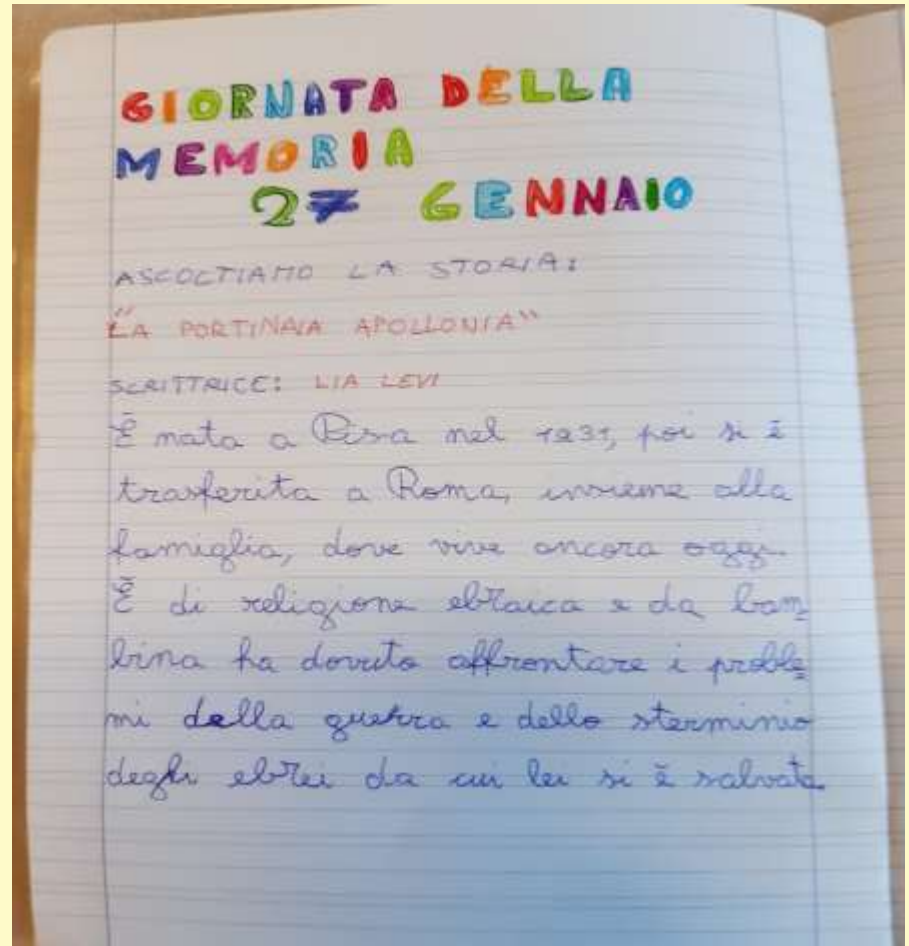 GIORNATA DELLA
MEMORIA
27 GENNAIO
ASCOLTIAMO LA STORIA:
"LA PORTINAIA APOLLONIA"
SCRITTRICE: LIA LEVI
È nata a Pisa nel 1931, poi si è
trasferita a Roma, insieme alla
famiglia, dove vive ancora oggi.
È di religione ebraica e da bam_
bina ha dovuto affrontare i proble_
mi della guerra e dello sterminio
degli ebrei da cui lei si è salvata